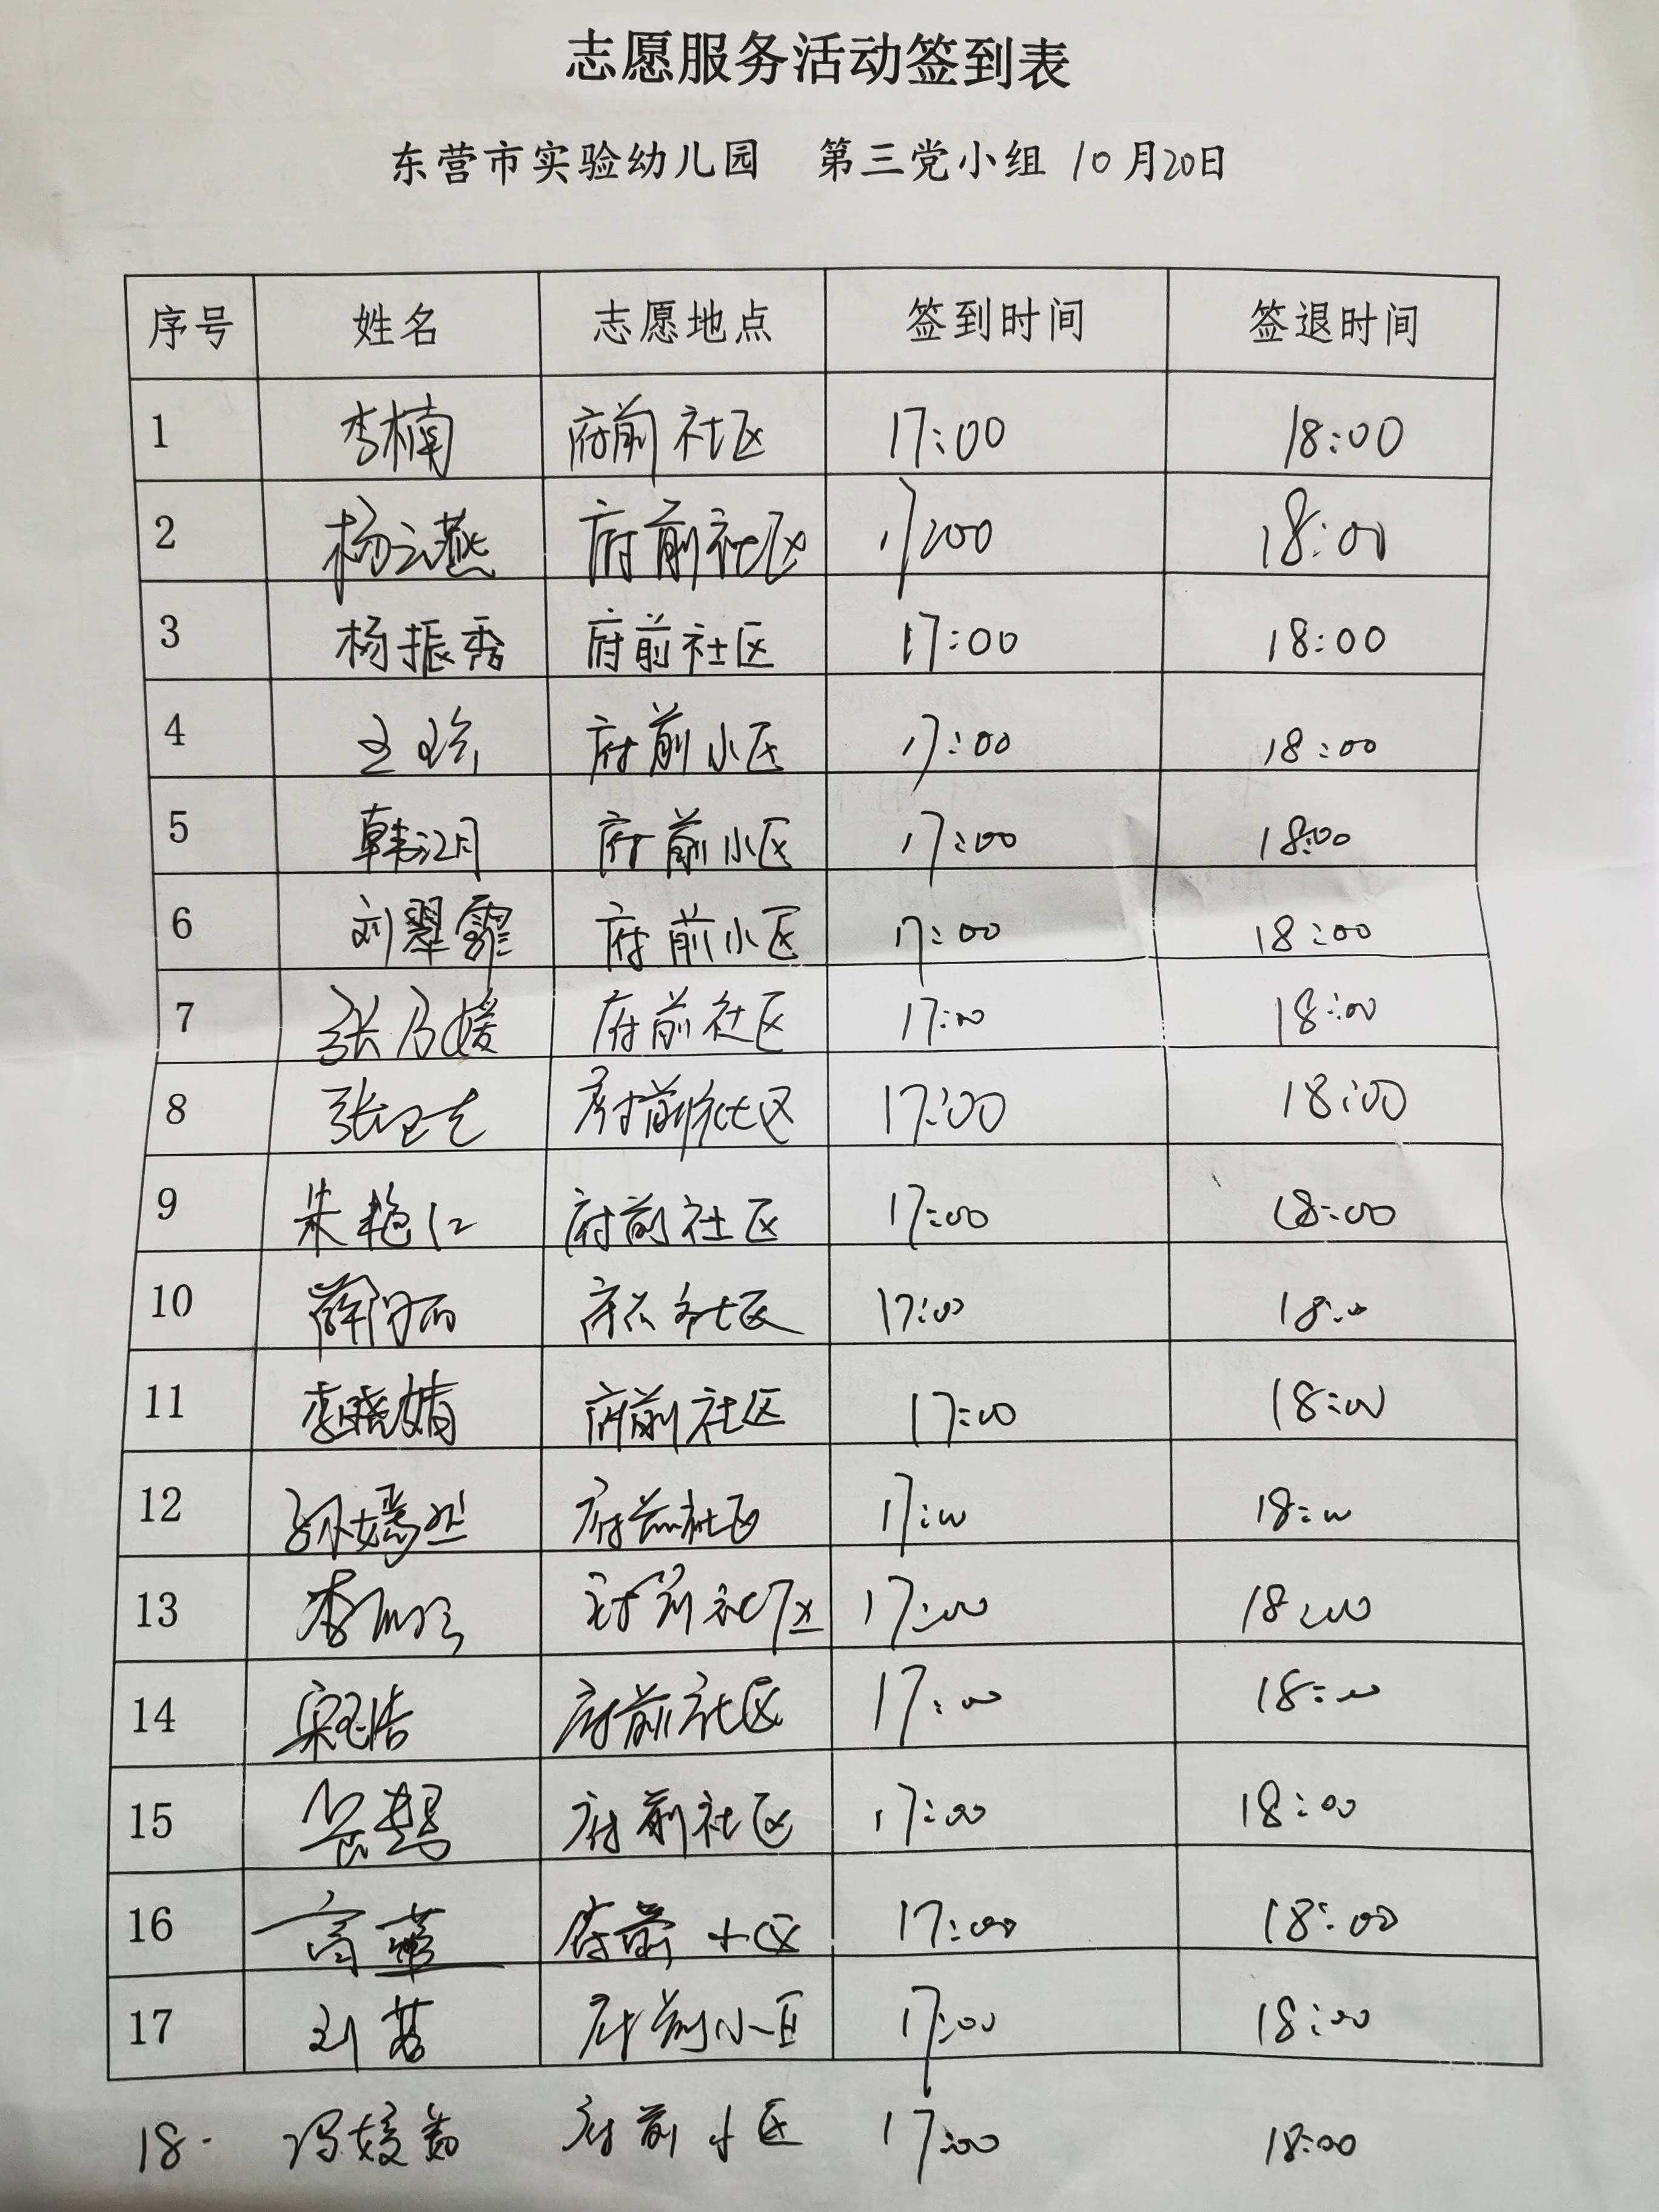 志愿服务活动签到表
东营市实验幼儿园 第三党小组 10月20日
序号 姓名 志愿地点 签到时间 签退时间
1 李楠 府前社区 17:00 18:00
2 杨云燕 府前社区 17:00 18:00
3 杨振秀 府前社区 17:00 18:00
4 王 府前小区 17:00 18:00
5 韩江月 府前小区 17:00 18:00
6 刘翠霏 府前小区 17:00 18:00
7 张乃媛 府前社区 17:00 18:00
8 张卫 府前社区 17:00 18:00
9 朱艳红 府前社区 17:00 18:00
10 薛 府前社区 17:00 18:00
11 李晓婧 府前社区 17:00 18:00
12 孙嫣然 府前社区 17:00 18:00
13 李 府前社区 17:00 18:00
14 府前社区 17:00 18:00
15 府前社区 17:00 18:00
16 高 府前小区 17:00 18:00
17 刘茗 府前小区 17:00 18:00
18. 冯 府前小区 17:00 18:00